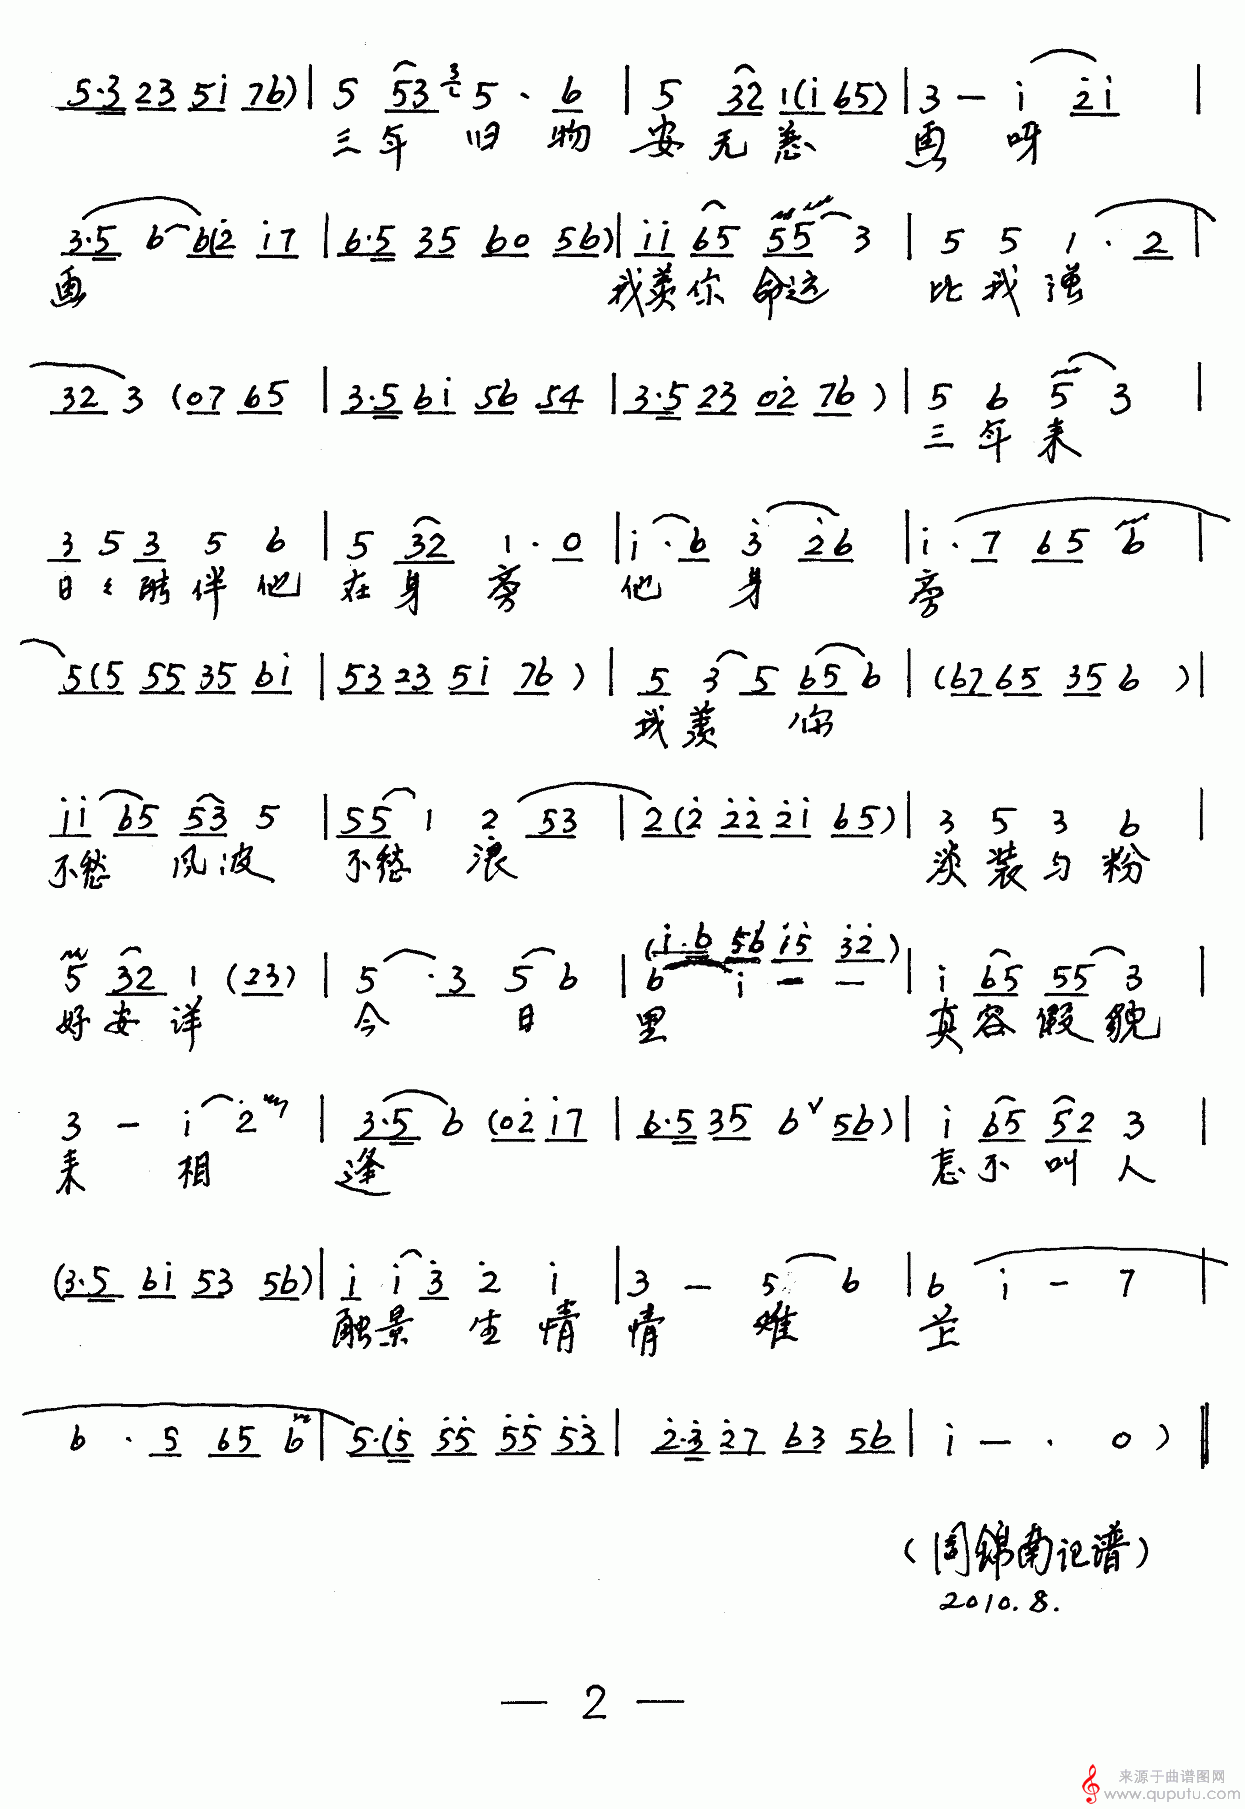 5·3 23 5i 76) | 5 53 3 5 · 6 | 5 32 1(i 65) | 3 — i 2i |
三年 旧 物 安 无恙 画 呀
3·5 6 6(2 i7 | 6·5 35 60 56) | ii 65 55 3 | 5 5 1 · 2 |
画 我羡你 命运 比 我 强
32 3 (07 65 | 3·5 6i 56 54 | 3·5 23 02 76 ) | 5 6 5 3 |
三 年 来
3 5 3 5 6 | 5 32 1 · 0 | i · 6 3 26 | i · 7 65 6 |
日 々 酔 伴 他 在 身 旁 他 身 旁
5(5 55 35 6i | 53 23 5i 76 ) | 5 3 5 65 6 | (67 65 35 6 ) |
我 羡 你
ii 65 53 5 | 55 1 2 53 | 2(2 22 2i 65) | 3 5 3 6 |
不愁 风 波 不愁 浪 淡 装 与 粉
(i·6 56 i5 32)
5 32 1 (23) | 5 · 3 5 6 | 6 i — — | i 65 55 3 |
好 安 详 今 日 里 真 容 假 貌
3 — i 2 | 3·5 6 (02 i7 | 6·5 35 6 56) | i 65 52 3 |
来 相 逢 怎 不 叫 人
(3·5 6i 53 56) | i i 3 2 i | 3 — 5 6 | 6 i — 7 |
触景 生 情 情 难 芒
6 · 5 65 6 | 5·(5 55 55 53 | 2·3 27 63 56 | i — · 0 ) ‖
(周锦南记谱)
2010.8.
— 2 —
来源于曲谱图网
www.quputu.com